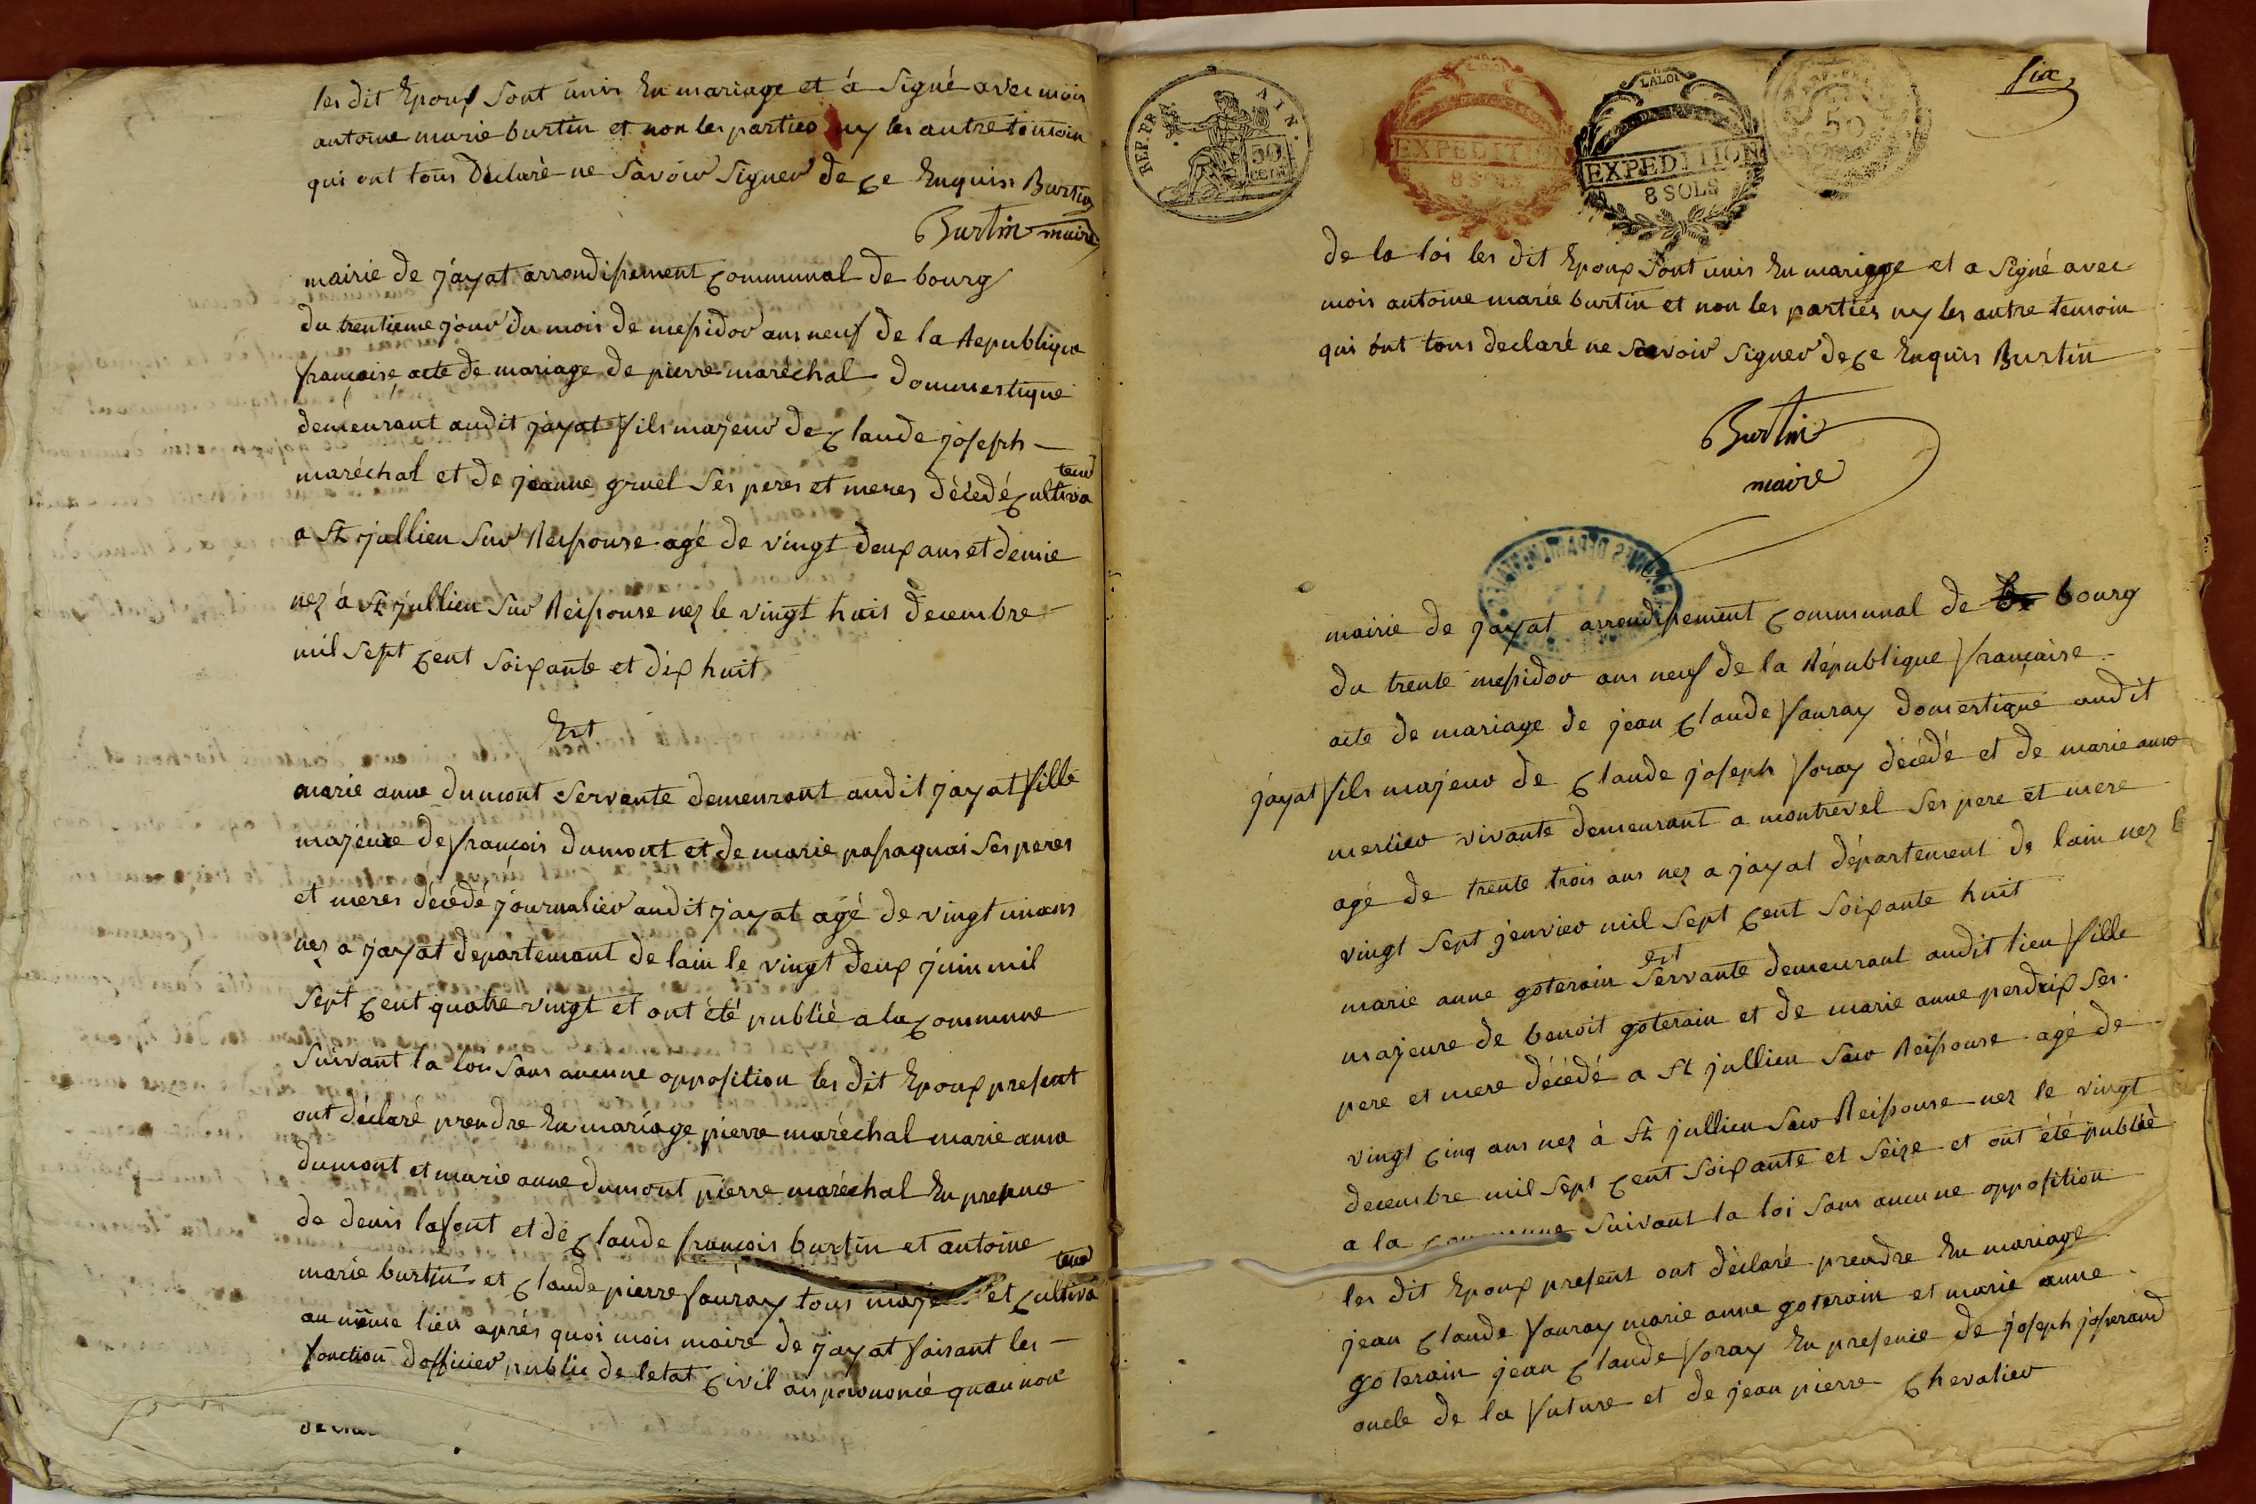 les dit Epoux sont unis En mariage et á Signé avec mois
antoine marie burtin et non les parties ny les autre temoin
qui ont tous Déclaré ne Savoir Signer de ce Enquis Burtin
Burtin maire
mairie de jayat arrondissement communal de bourg
du trentieme jour du mois de messidor ans neuf de la Republique
française acte de mariage de pierre maréchal dommestique
demeurant audit jayat fils majeur de Claude joseph
maréchal et de jeanne gruel Ses peres et meres décedé cultiva
teur
a St jullien Sur Reissouse agé de vingt deux ans et demie
nez á St jullien Sur Reissouse nez le vingt huis decembre
mil sept cent Soixante et dix huit
Est
marie anne dumont Servante demeurant audit jayat fille
majeure de françois dumont et de marie passaquai Ses peres
et meres décédé journalier audit jayat agé de vingt un ans
nez a jayat departement de lain le vingt deux juin mil
sept cent quatre vingt et ont été publié a la commune
Suivant la loi Sans aucune opposition les dit Epoux present
ont déclaré prendre En mariage pierre maréchal marie anne
dumont et marie anne dumont pierre maréchal En presence
de denis lafont et de Claude françois burtin et antoine
marie burtin et Claude pierre fauray tous et cultiva
teur
au même lieu aprés quoi mois maire de jayat faisant les
fonction dofficier public de letat civil ais prononcé quau non
six
REP. FR. AIN.
50
CENT.
EXPEDITION
8 SOLS
LA LOI
EXPEDITION
8 SOLS
50
de la loi les dit Epoux Sont unis En mariage et a Signé avec
mois antoine marie burtin et non les parties ny les autre temoin
qui ónt tous declaré ne Savoir Signer de ce Enquis Burtin
Burtin
maire
mairie de jayat arrondissement communal de bourg
du trente messidor ans neuf de la République française
acte de mariage de jean Claude fauray domestique audit
jayat fils majeur de Claude joseph foray décédé et de marie anne
mercier vivante demeurant a montrevel Ses pere et mere
agé de trente trois ans nez a jayat département de lain nez l
vingt sept jenvier mil Sept cent Soixante huit
est
marie anne goterain Servante demeurant audit lieu fille
majeure de benoit goterain et de marie anne perdrix Ses
pere et mere décédé a St jullien Sur Reissouse agé de
vingt cinq ans nez á St jullien Sur Reissouse nez le vingt
decembre mil Sept cent Soixante et Seize et ont été publié
a la commune Suivant la loi Sans aucune opposition
les dit Epoux present ont déclaré prendre En mariage
jean Claude fauray marie anne goterain et marie anne
goterain jean Claude foray En presence de joseph josserand
oncle de la future et de jean pierre Chevalier